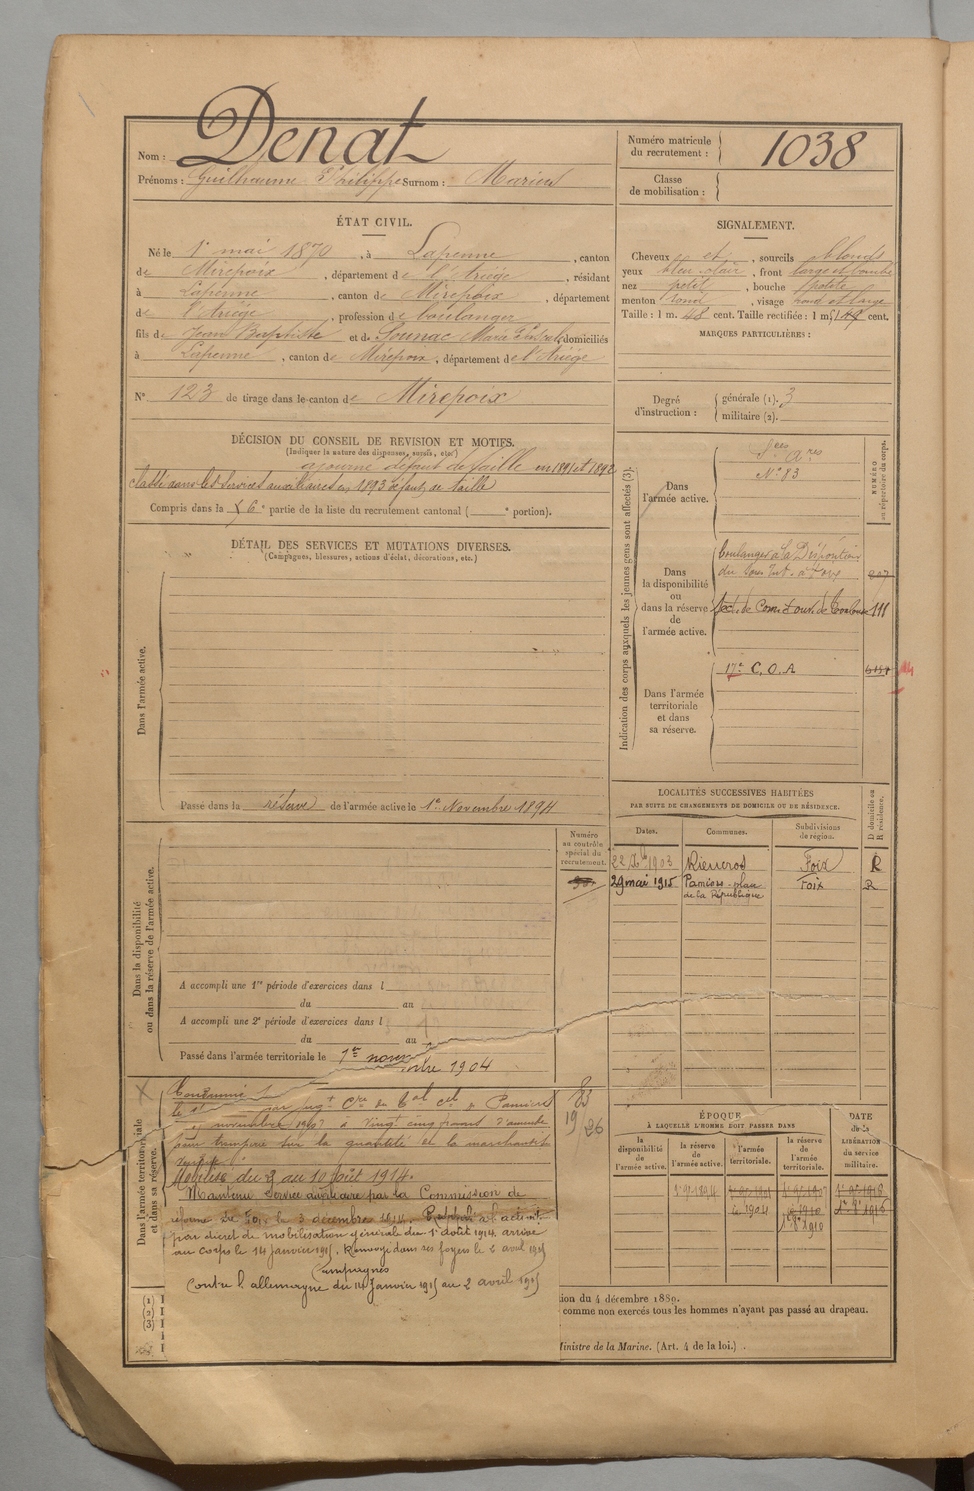 Nom : Denat
Prénoms : Guilhaume Philippe Surnom : Marius
Numéro matricule du recrutement : 1038
Classe de mobilisation :
ÉTAT CIVIL.
Né le 1er mai 1870, à Lapenne, canton
de Mirepoix, département de l'Ariége, résidant
à Lapenne, canton de Mirepoix, département
de l'Ariége, profession de boulanger
fils de Jean Baptiste et de Sounac Marie domiciliés
à Lapenne, canton de Mirepoix, département de l'Ariége
N° 123 de tirage dans le canton de Mirepoix
SIGNALEMENT.
Cheveux et, sourcils blonds
yeux bleu clair, front large et bombé
nez petit, bouche petite
menton rond, visage rond et large
Taille : 1 m. 48 cent. Taille rectifiée : 1 m. 149 cent.
MARQUES PARTICULIÈRES :
Degré d'instruction : générale (1). 3
militaire (2).
DÉCISION DU CONSEIL DE REVISION ET MOTIFS.
(Indiquer la nature des dispenses, sursis, etc.)
ajourné défaut de taille en 1891 et 1892
classé dans les services auxiliaires en 1893 défaut de taille
Compris dans la 6e partie de la liste du recrutement cantonal ( e portion).
DÉTAIL DES SERVICES ET MUTATIONS DIVERSES.
(Campagnes, blessures, actions d'éclat, décorations, etc.)
Dans l'armée active.
Passé dans la réserve de l'armée active le 1er Novembre 1894
Indication des corps auxquels les jeunes gens sont affectés (3).
NUMÉRO au répertoire du corps.
Dans l'armée active.
Sces Ares
N° 83
Dans la disponibilité ou dans la réserve de l'armée active.
boulanger à la Disposition
du Sous Int. à Foix
807
Sect. de Com. et ouv. de Toulouse 111
Dans l'armée territoriale et dans sa réserve.
17e C.O.A
LOCALITÉS SUCCESSIVES HABITÉES
PAR SUITE DE CHANGEMENTS DE DOMICILE OU DE RÉSIDENCE.
Dates. Communes. Subdivisions de région. D domicile ou R résidence.
22 1903 Rieucros Foix R
29 mai 1915 Pamiers place de la République Foix R
Numéro au contrôle spécial du recrutement.
Dans la disponibilité ou dans la réserve de l'armée active.
A accompli une 1re période d'exercices dans l
du au
A accompli une 2e période d'exercices dans l
du au
Passé dans l'armée territoriale le 1er novembre 1904
Dans l'armée territoriale et dans sa réserve.
Condamné
par jugt Cre du bal cel de Pamiers
novembre 1907 à vingt cinq francs d'amende
pour tromperie sur la quantité de la marchandise
vendue.
Mobilisé du 3 au 10 août 1914.
Maintenu Service auxiliaire par la Commission de
réforme de Foix le 3 décembre 1914. Rappelé à l'activité
par décret de mobilisation générale du 1er août 1914 arrivé
au corps le 14 janvier 1915. Renvoyé dans ses foyers le 2 avril 1915
Campagnes
Contre l'allemagne du 14 Janvier 1915 au 2 avril 1915
83
19 26
ÉPOQUE
À LAQUELLE L'HOMME DOIT PASSER DANS
la disponibilité de l'armée active.
la réserve de l'armée active.
l'armée territoriale.
la réserve de l'armée territoriale.
DATE de la LIBÉRATION du service militaire.
(1)
(2)
(3)
ion du 4 décembre 1889.
comme non exercés tous les hommes n'ayant pas passé au drapeau.
Ministre de la Marine. (Art. 4 de la loi.)